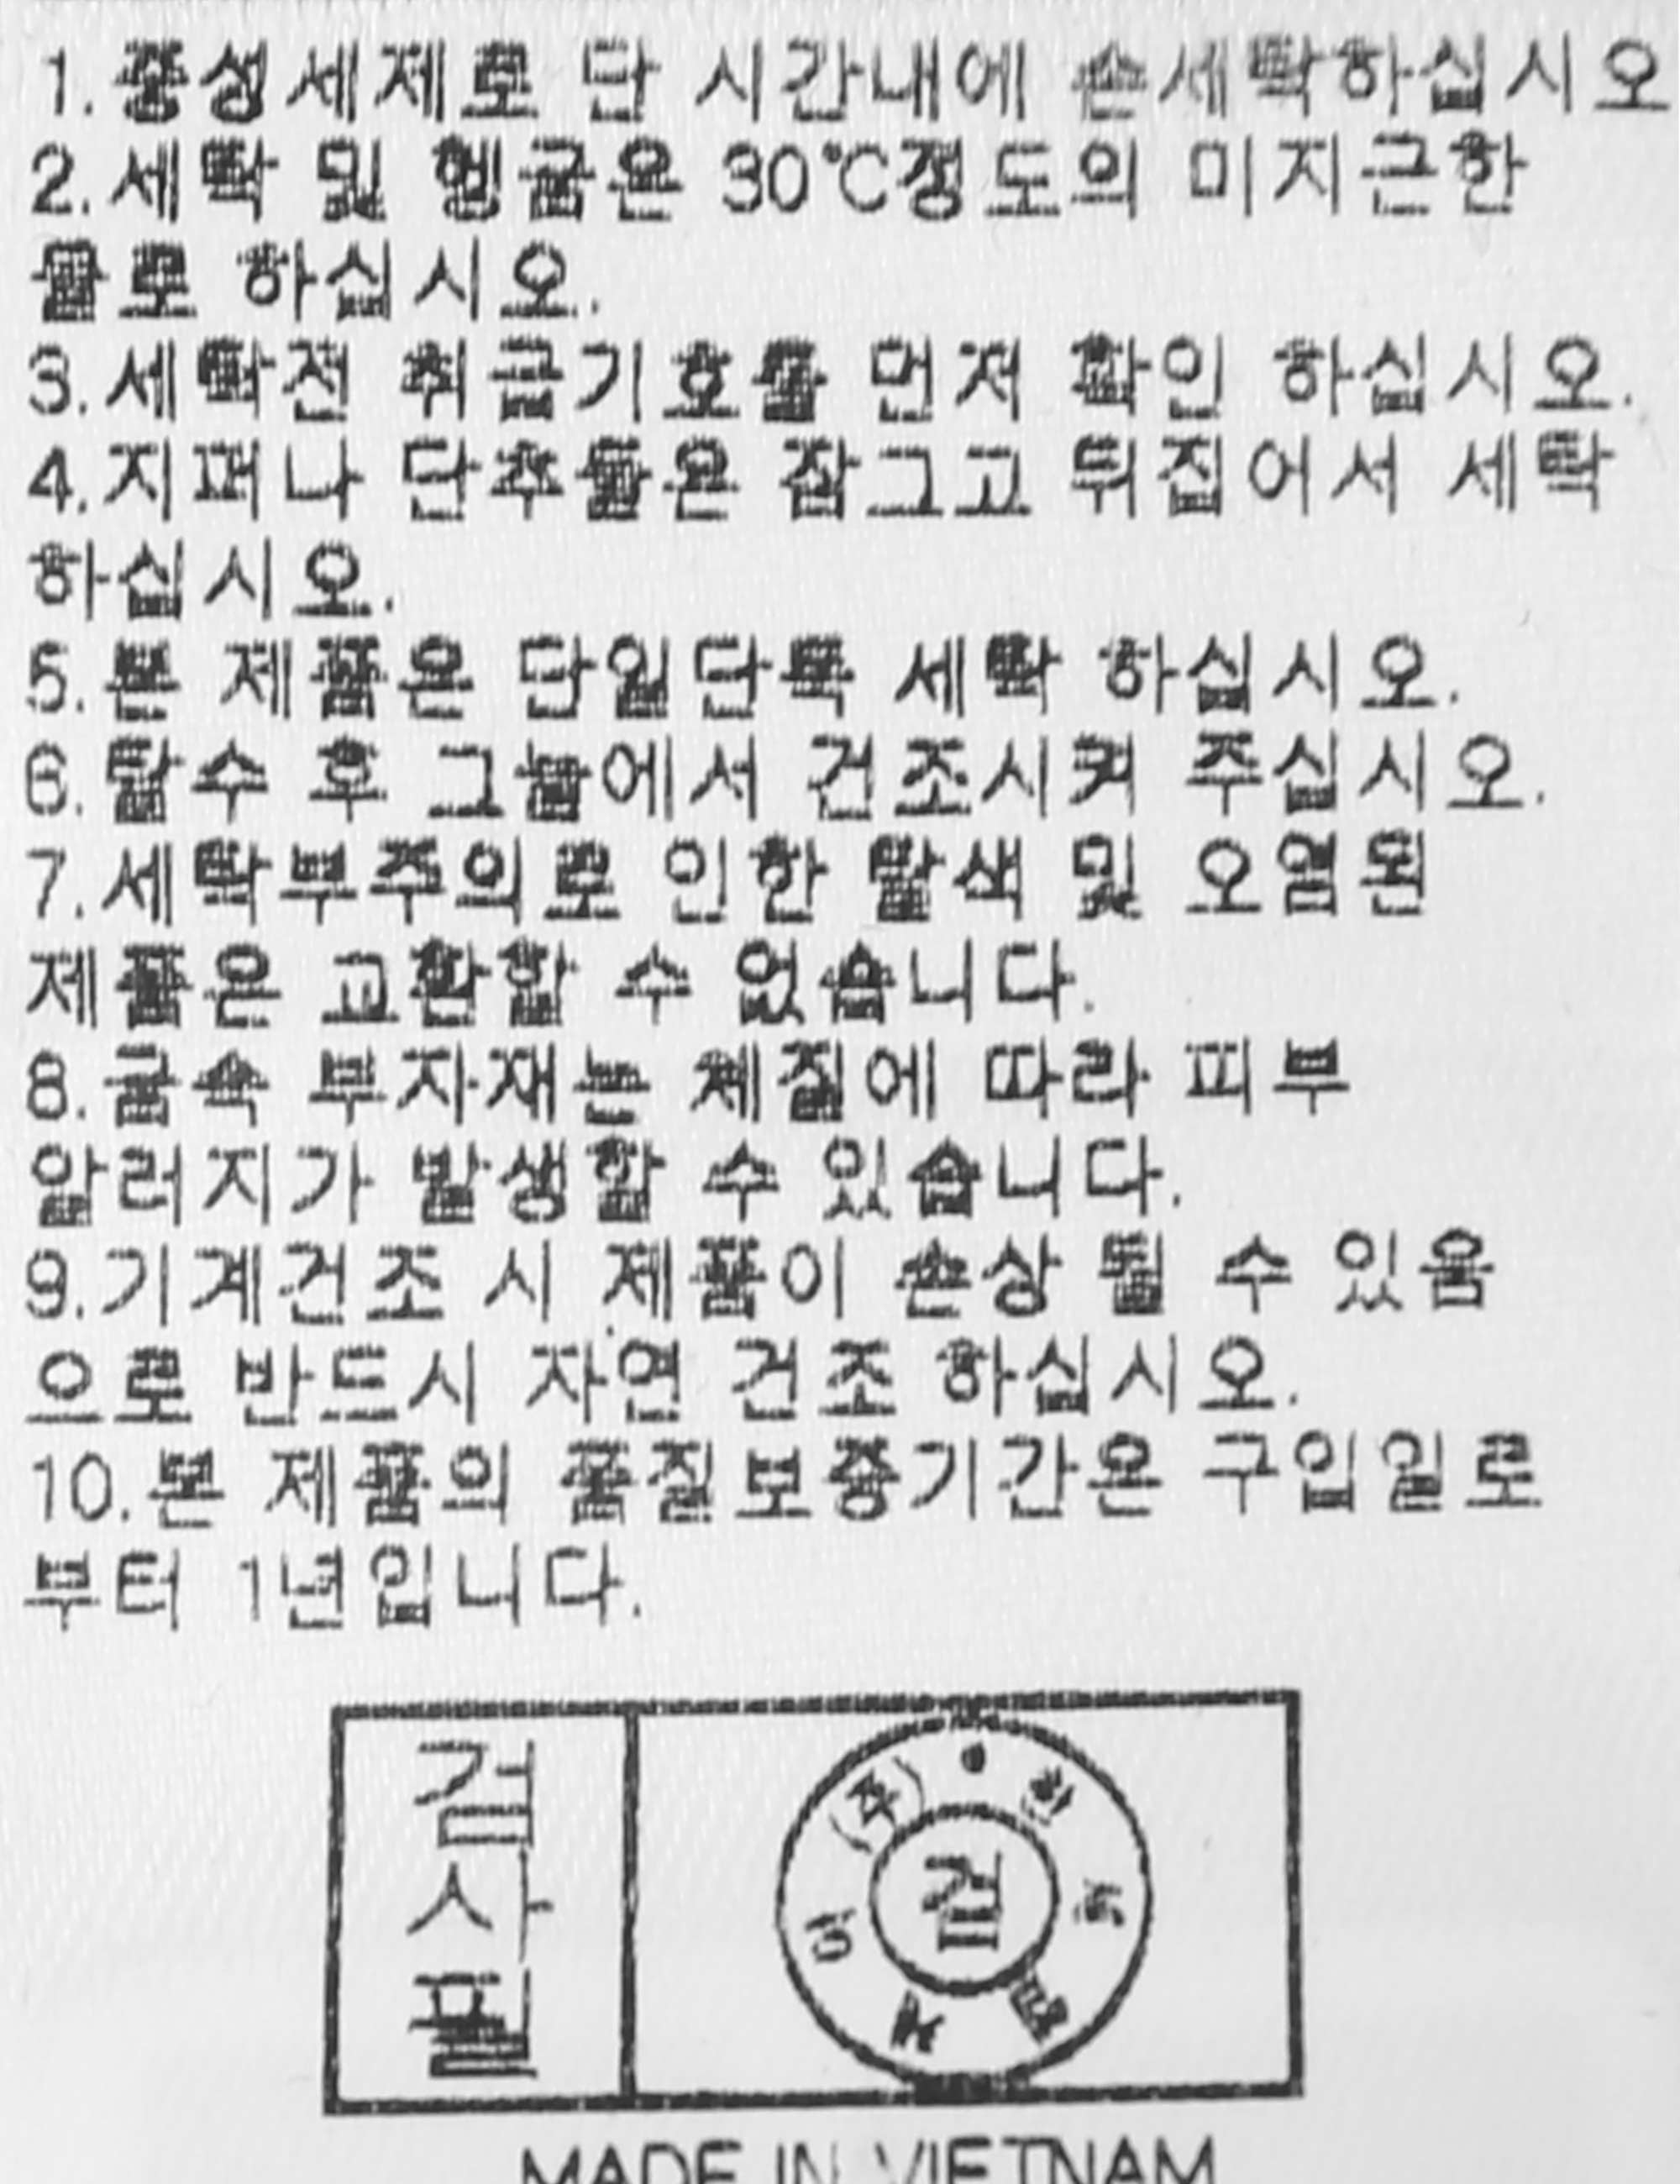 1.중성세제로 단 시간내에 손세탁하십시오
2.세탁 및 헹굼은 30℃정도의 미지근한
물로 하십시오.
3.세탁전 취급기호를 먼저 확인 하십시오.
4.지퍼나 단추들은 잠그고 뒤집어서 세탁
하십시오.
5.본 제품은 단일단독 세탁 하십시오.
6.탈수 후 그늘에서 건조시켜 주십시오.
7.세탁부주의로 인한 탈색 및 오염된
제품은 교환할 수 없습니다.
8.금속 부자재는 체질에 따라 피부
알러지가 발생할 수 있습니다.
9.기계건조 시 제품이 손상 될 수 있음
으로 반드시 자연 건조 하십시오.
10.본 제품의 품질보증기간은 구입일로
부터 1년입니다.
검사필
(주)
검
MADE IN VIETNAM